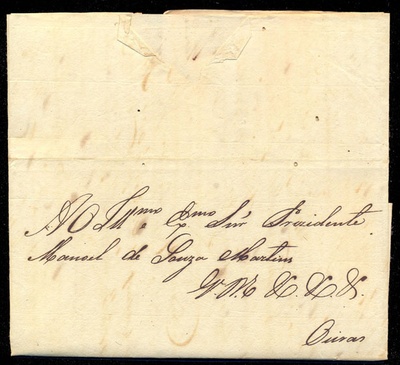 Ao Illmo e Exmo Snr Prezidente
Manoel de Souza Martins
V. P. E. &. &. &.
Oeiras